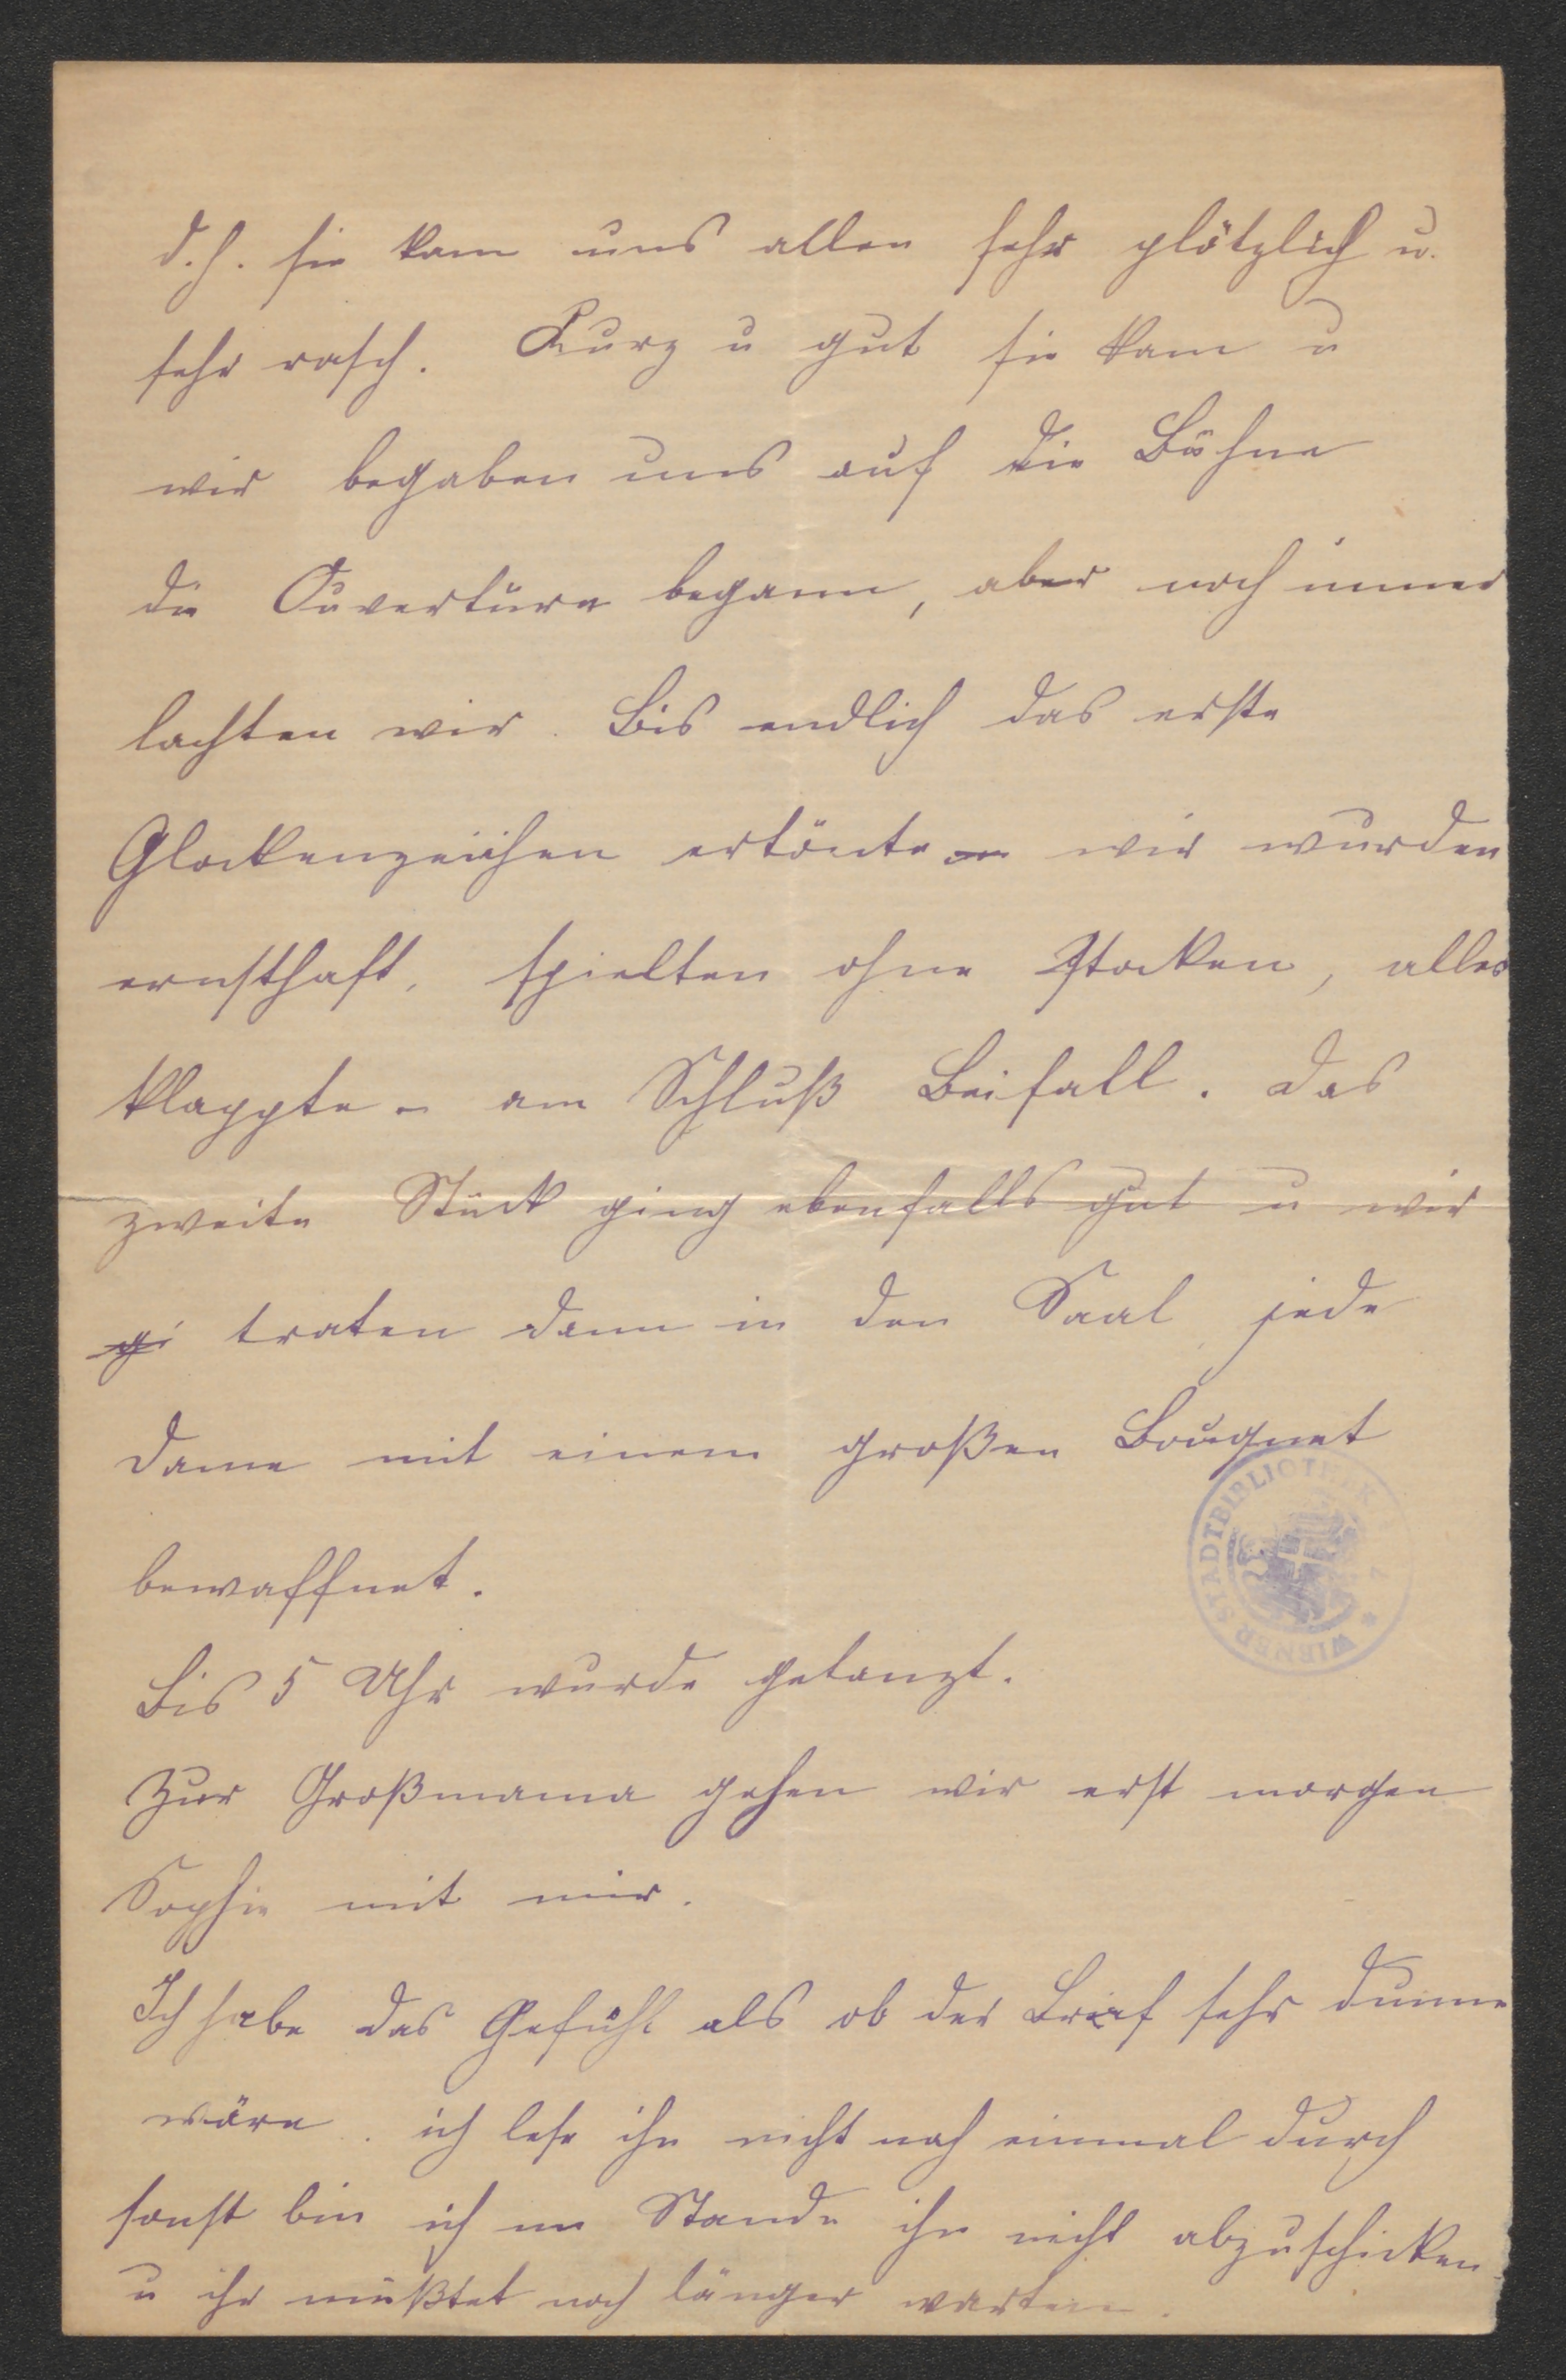 d.h. sie kam uns allen sehr plötzlich u.
sehr rasch. Kurz u gut sie kam u
wir begaben uns auf die Bühne
die Ouverture begann, aber noch immer
lachten wir. Bis endlich das erste
Glockenzeichen ertönte wir wurden
ernsthaft, spielten ohne Stocken, alles
klappte – am Schluß Beifall. Das
zweite Stück ging ebenfalls gut u wir
gi traten dann in den Saal, jede
Dame mit einem großen Bouquet
bewaffnet.
WIENER STADTBIBLIOTHEK
Bis 5 Uhr wurde getanzt.
Zur Großmama gehen wir erst morgen
Sophie mit mir.
Ich habe das Gefühl als ob der Brief sehr dumm
wäre. ich lese ihn nicht noch einmal durch
sonst bin ich im Stande ihn nicht abzuschicken
u ihr müßtet noch länger warten.